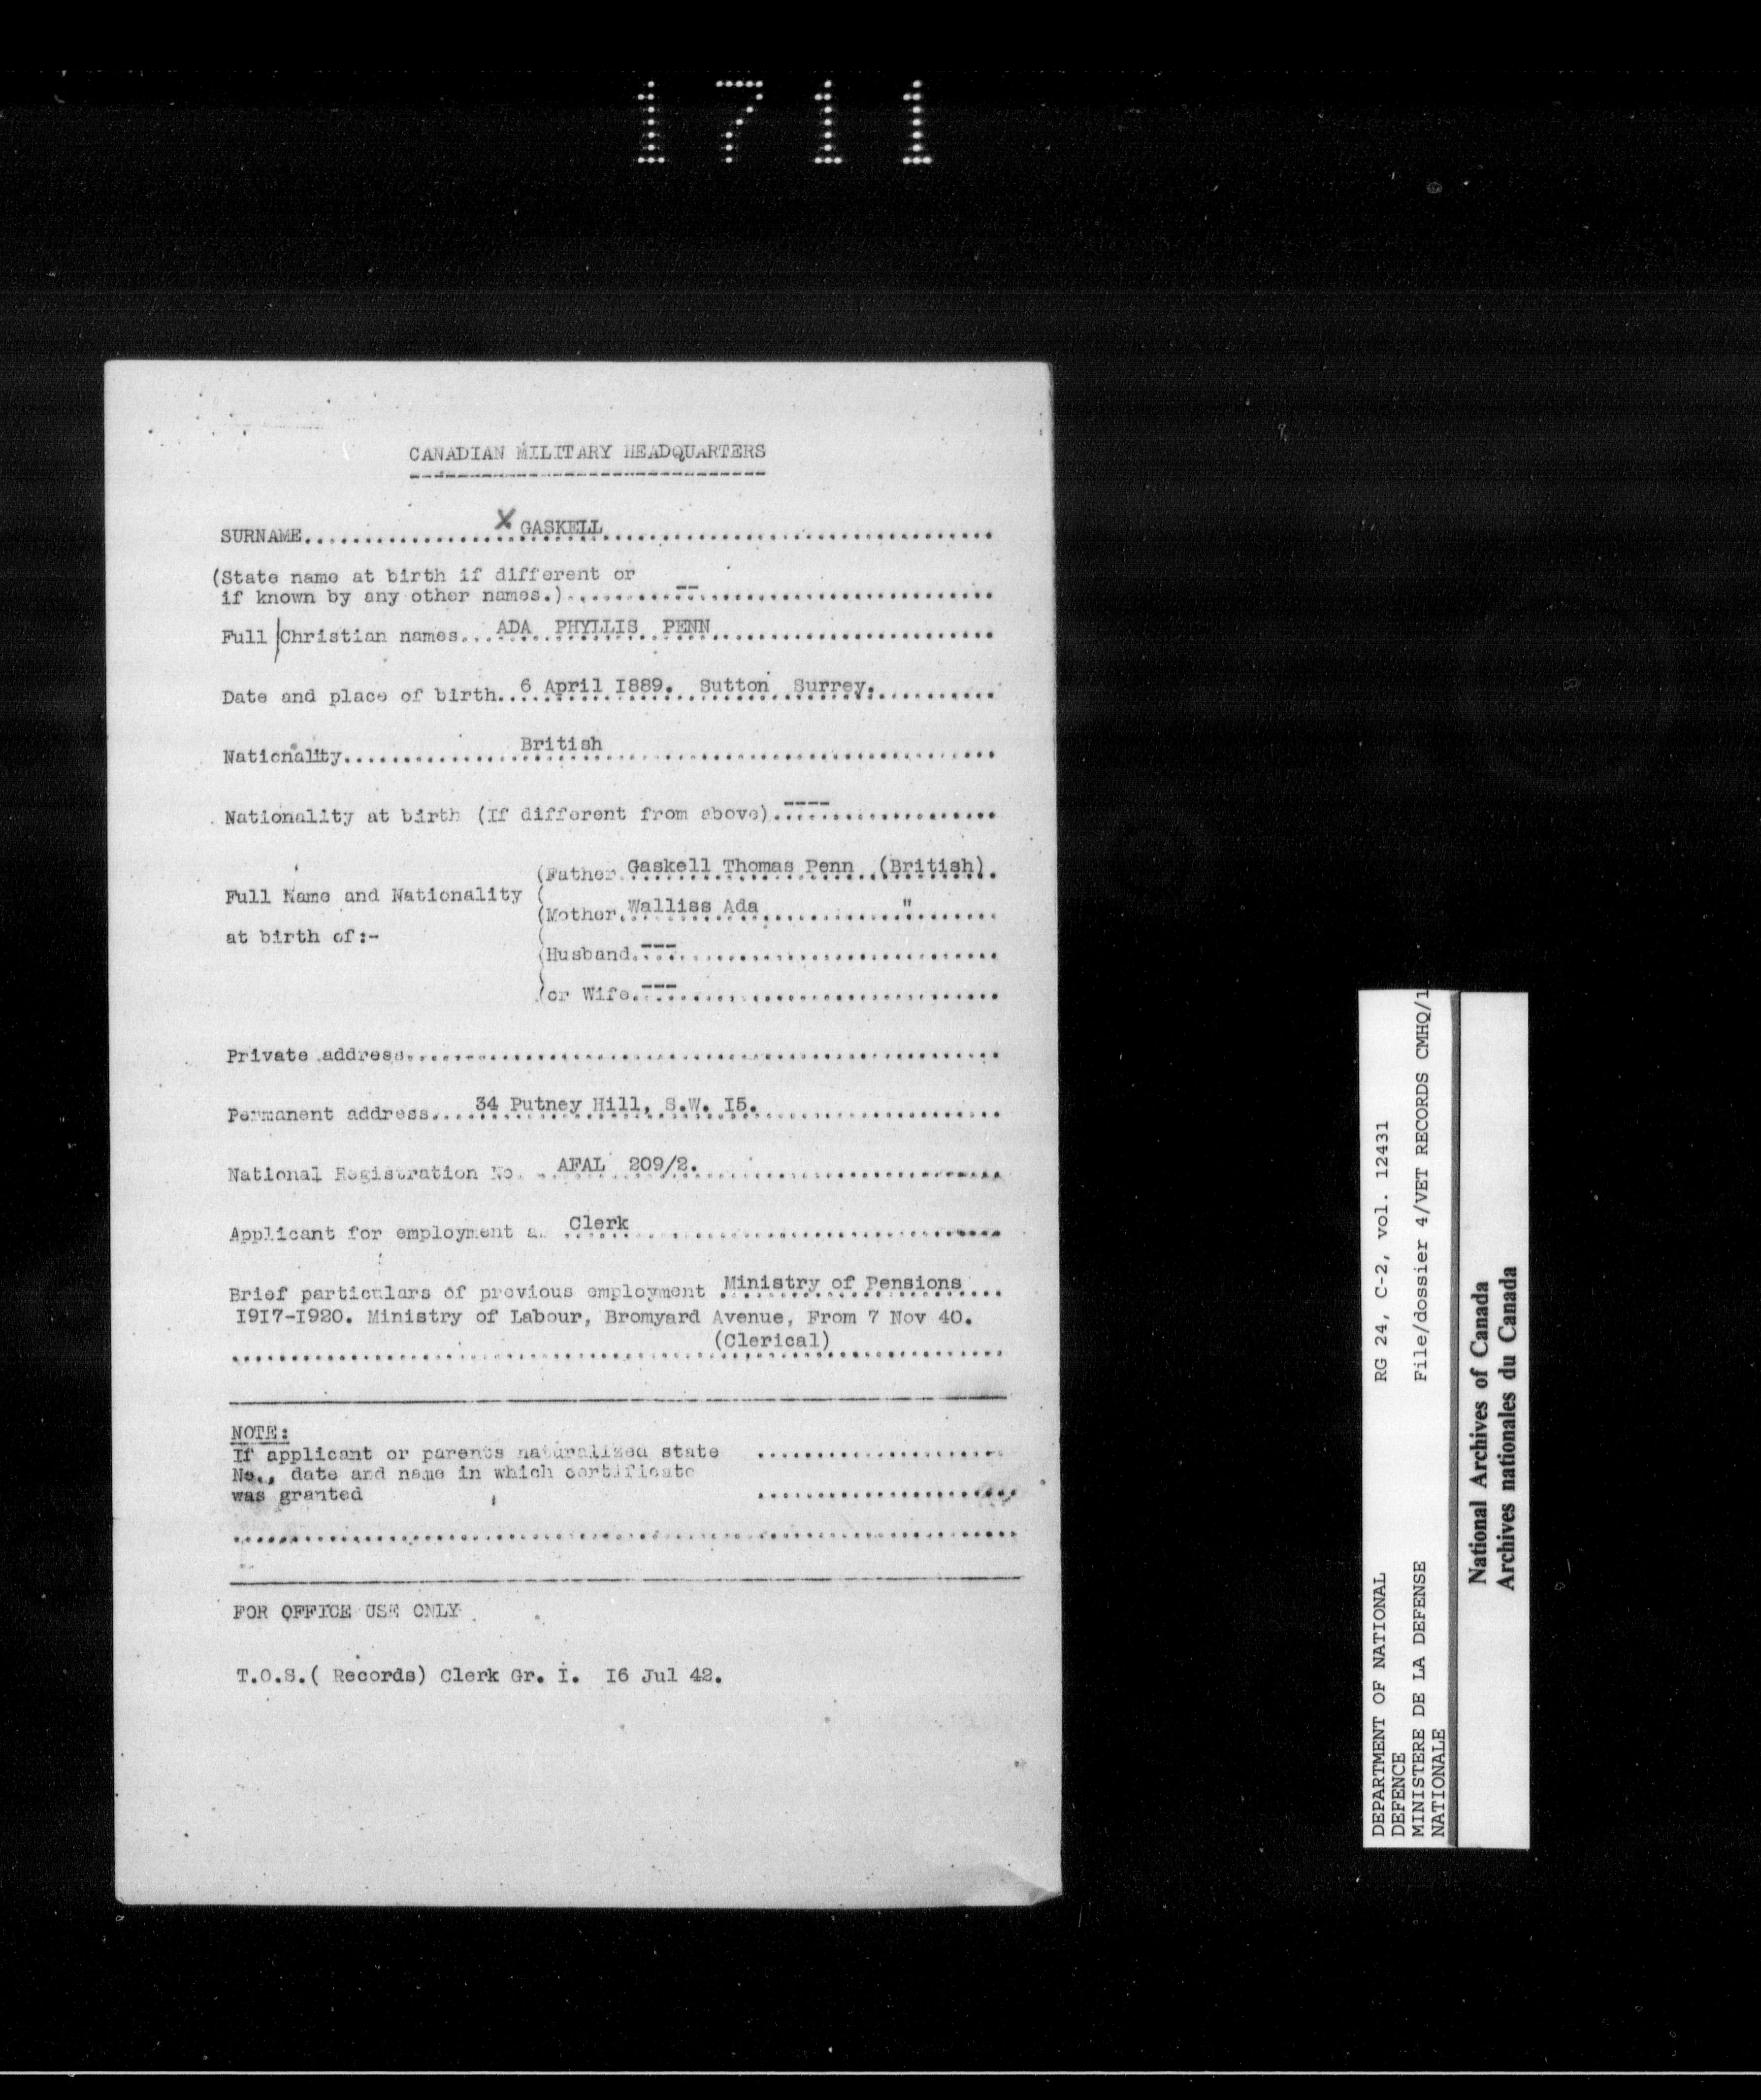 1711
CANADIAN MILITARY HEADQUARTERS
SURNAME.......... X GASKELL ..........
(State name at birth if different or
if known by any other names.)..........--..........
Full Christian names... ADA PHYLLIS PENN ..........
Date and place of birth.. 6 April I889. Sutton Surrey. ..........
Nationality.......... British ..........
Nationality at birth (If different from above) ---- ..........
Full Name and Nationality
at birth of:-
(Father Gaskell Thomas Penn (British).
(Mother. Walliss Ada " ..........
(Husband. --- ..........
(or Wife. --- ..........
Private address..........
Permanent address.... 34 Putney Hill, S.W. I5. ..........
National Registration No. AFAL 209/2. ..........
Applicant for employment as Clerk ..........
Brief particulars of previous employment Ministry of Pensions
I9I7-I920. Ministry of Labour, Bromyard Avenue, From 7 Nov 40.
(Clerical)
NOTE:
If applicant or parents naturalized state ..........
No., date and name in which certificate
was granted ..........
FOR OFFICE USE ONLY
T.O.S.( Records) Clerk Gr. I. I6 Jul 42.
DEPARTMENT OF NATIONAL
DEFENCE
MINISTERE DE LA DEFENSE
NATIONALE
RG 24, C-2, vol. 12431
File/dossier 4/VET RECORDS CMHQ/1
National Archives of Canada
Archives nationales du Canada